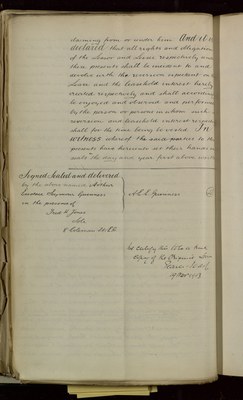 claiming from or under him And it is
declared that all rights and obligations
of the lessor and lessee respectively under
these presents shall be incident to and
devolve with the reversion expectant on
lease and the leasehold interest hereby
created respectively and shall accordingly
be enjoyed and observed and performed
by the person or persons in whom such
reversion and leasehold interest respectively
shall for the time being be vested In
witness whereof the said parties to these
presents have hereunto set their hands and
seals the day and year first above written
Signed Sealed and delivered
by the above named Arthur
in the presence of
Fred W Jones
Solr
8 Coleman St EC
We certify this to be a true
copy of the original